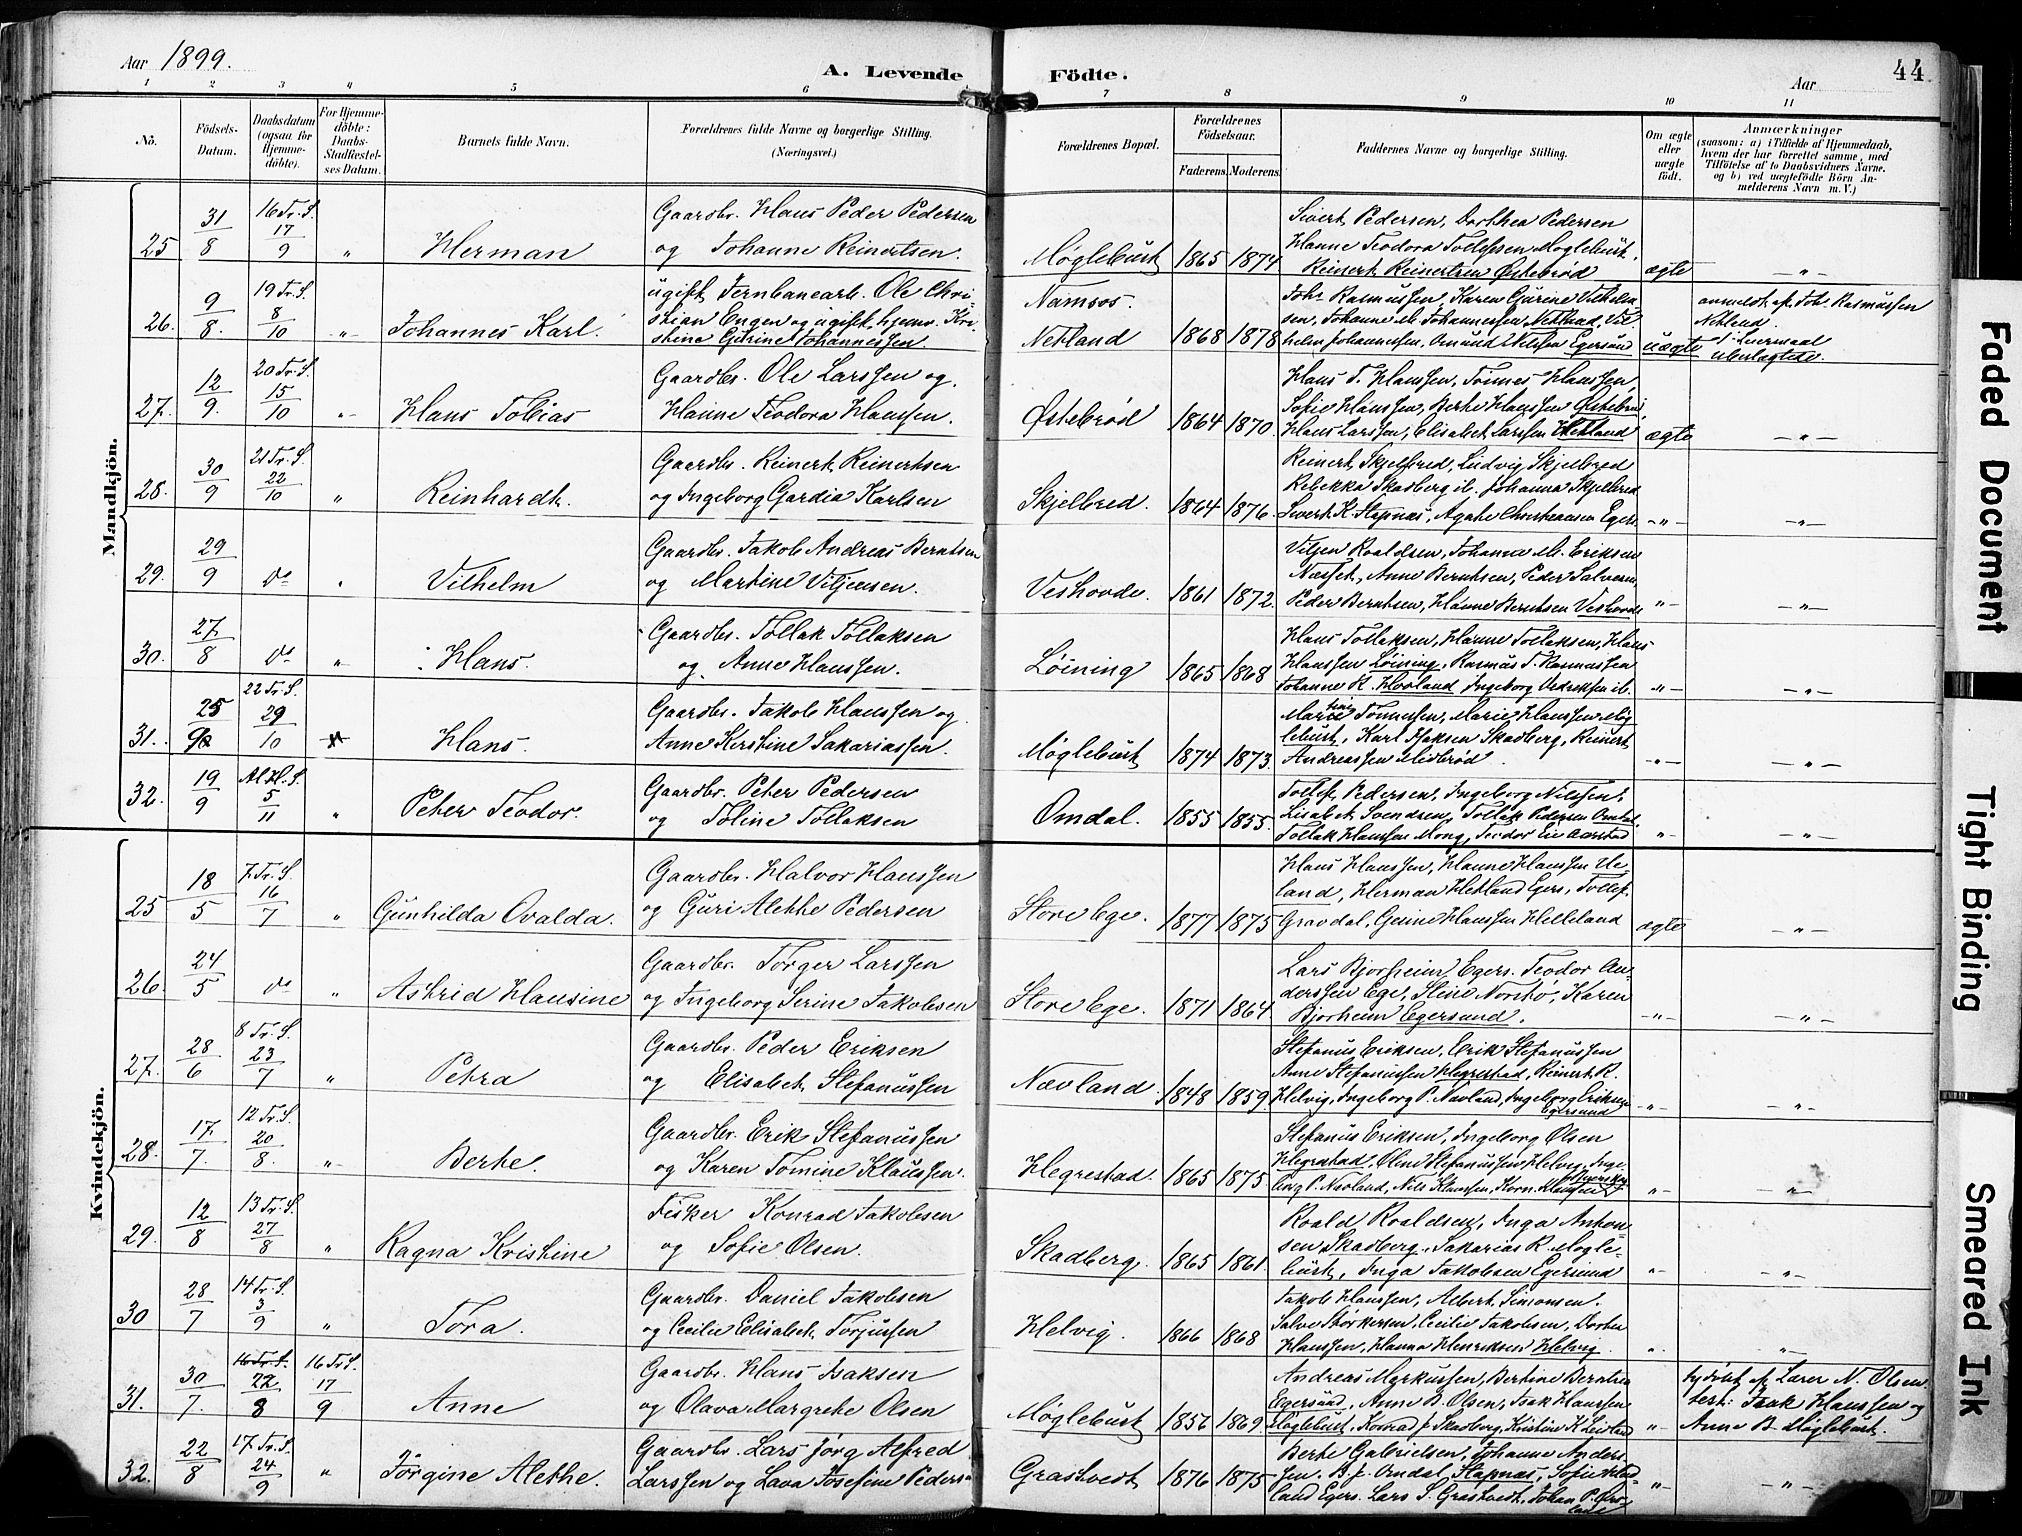 Aar 1899.
A. Levende Födte.
Aar
44
1 2 3 4 5 6 7 8 9 10 11
No.
Födsels-Datum.
Daabsdatum (ogsaa for Hjemme-döbte).
For Hjemme-döbte: Daabs-Stadfæstel-ses Datum.
Barnets fulde Navn.
Forældrenes fulde Navne og borgerlige Stilling.
(Næringsvei.)
Forældrenes Bopæl.
Forældrenes Födselsaar.
Faderens. Moderens.
Faddernes Navne og borgerlige Stilling.
Om ægte eller uægte födt.
Anmærkninger
(saasom: a) i Tilfælde af Hjemmedaab,
hvem der har forrettet samme, med
Tilföielse af to Daabsvidners Navne.
og b) ved uægtefödte Börn An-
melderens Navn m. V.)
Mandkjön.
25 31/8 16 Tr. S. 17/9 " Herman
Gaardbr. Hans Peder Pedersen
og Johanne Reinertsen.
Møglebust 1865 1874
Sivert Pedersen, Dorthea Pedersen
Hanne Teodora Tollefsen Møglebust.
Reinert Reinertsen Østebrød
ægte — " —
26. 9/8. 19 Tr. S. 8/10 " Johannes Karl.
ugift Jernbanearb. Ole Chri-
stian Engen og ugift hjemv. Kri-
stine Gurine Johannessen.
Namsos.
Netland 1868 1878
Joh. Rasmussen, Karen Gurine Vilhelm
sen, Johanne M. Johannessen Netland, Vil-
helm Johannessen, Omund Nilssen Egersund
uægte
anmeldt af Joh. Rasmussen
Netland.
1ste Leiermaal
27. 12/9. 20 Tr. S. 15/10 " Hans Tobias
Gaardbr. Ole Larssen og
Hanne Teodora Hanssen.
Østebrød 1864 1870.
Hans T. Hanssen, Tønnes Hanssen,
Sofie Hanssen, Berte Hanssen
Hans Larssen, Elisabet Larssen Hetland
ægte — " —
28. 30/9 21 Tr. S. 22/10 " Reinhardt.
Gaardbr. Reinert Reinertsen
og Ingeborg Gardia Karlsen
Skjelbred. 1864 1876.
Reinert Skjelbred, Ludvig Skjelbred
Rebekka Skadberg ib. Johanna Skjelbred
Sivert K. Stapnæs, Agate Christiansen Egers.
— " — — " —
29. 29/9 do " Vilhelm
Gaardbr. Jakob Andreas Berntsen
og Martine Viljensen.
Veshovde. 1861 1872.
Viljen Roaldsen, Johanne M. Eriksen
Næsset, Anne Berntsen, Peder Salvesen
Peder Berntsen, Hanne Berntsen Veshovde
" — — " —
30. 27/8 do " Hans.
Gaardbr. Tollak Tollaksen
og Anne Hanssen.
Løining 1865 1868
Hans Tollaksen, Hanne Tollaksen, Hans
Hanssen Løining, Rasmus T. Rasmussen
Johanne K. Hovland Ingeborg Vedreksen ib.
— " — — " —
31. 25/9 22 Tr. S. 29/10 Hans.
Gaardbr. Jakob Hanssen og
Anne Kirstine Sakariassen.
Møglebust 1874 1873.
Marie Tønnessen, Marie Hanssen Møg
lebust, Karl Isaksen Skadberg, Reinert
Andreassen Midbrød.
— " — — " —
32. 19/9 Al H. S. 5/11 " Peter Teodor.
Gaardbr. Peter Pedersen
og Toline Tollaksen
Omdal. 1855 1855.
Tollef Pedersen, Ingeborg Nilssen,
Lisabet Svendsen, Tollak Pedersen Omdal
Tollak Hanssen Mong, Teodor Eie Aarstad
" — — " —
Kvindekjön.
25 18/5 7. Tr. S. 16/7 " Gunhilda Ovalda.
Gaardbr. Halvor Hanssen
og Guri Alethe Pedersen
Store Ege. 1877 1875
Hans Hanssen, Hanne Hanssen Ue-
land, Herman Hetland Egers, Tollef
Gravdal, Gunine Hanssen Helleland
ægte — " —
26. 24/5 do " Astrid Hansine
Gaardbr. Torger Larssen
og Ingeborg Serine Jakobsen
Store Ege. 1871 1864
Lars Bjorheim Egers. Teodor An-
derssen Ege, Stine Norstø, Karen
Bjorheim Egersund.
— " — — " —
27. 28/6 8 Tr. S. 23/7 " Petra
Gaardbr. Peder Eriksen
og Elisabet Stefanussen
Nævland. 1848 1859.
Stefanus Eriksen, Erik Stefanussen
Anne Stefanussen Hegrestad, Reinert R.
Helvig, Ingeborg P. Nævland, Ingeborg Eriksen
Egersund
— " — — " —
28. 17/7. 12 Tr. S. 20/8. " Berte.
Gaardbr. Erik Stefanussen
og Karen Tomine Klaussen.
Hegrestad. 1865 1875.
Stefanus Eriksen, Ingeborg Olsen
Hegrestad, Oline Stefanussen Helvig, Inge-
borg P. Nævland, Nils Klaussen, Korn. Klaussen
" — "
29. 12/8 13 Tr. S. 27/8 " Ragna Kristine
Fisker Konrad Jakobsen
og Sofie Olsen.
Skadberg. 1865 1861.
Roald Roaldsen, Inga Anton-
sen Skadberg, Sakarias R. Møgle-
bust, Inga Jakobsen Egersund
" — — " —
30 28/7 14 Tr. S. 3/9 " Tora.
Gaardbr. Daniel Jakobsen
og Cecilie Elisabet Torjussen
Helvig. 1866 1868
Jakob Hanssen, Albert Simonsen.
Salve Størkersen, Cecilie Jakobsen, Dortea
Hanssen, Hanna Henriksen Helvig.
" "
31. 30/7. 16 Tr. S. 22/8 16 Tr S. 17/9 Anne
Gaardbr. Hans Isaksen
og Olava Margrete Olsen
Møglebust 1856 1869.
Andreas Markussen, Bertine Berntsen
Egersund, Anne B. Olsen, Isak Hanssen
Møglebust, Konrad J. Skadberg, Kristine K. Leidland
"
hjdøbt af Lærer N. Olsen.
test: Isak Hanssen og
Anne B. Møglebust.
32. 22/8 17. Tr. S. 24/9 " Jørgine Alethe.
Gaardbr. Lars Jørg Alfred
Larssen og Lava Josefine Peders-
Grastvedt 1876 1875
Berte Gabrielsen, Johanne Anders-
sen. B. J. Omdal, Stapnæs, Sofie Het-
land Egers. Lars S. Grastvedt, Johan P.
" — — " —
Faded Document
Tight Binding
Smeared Ink